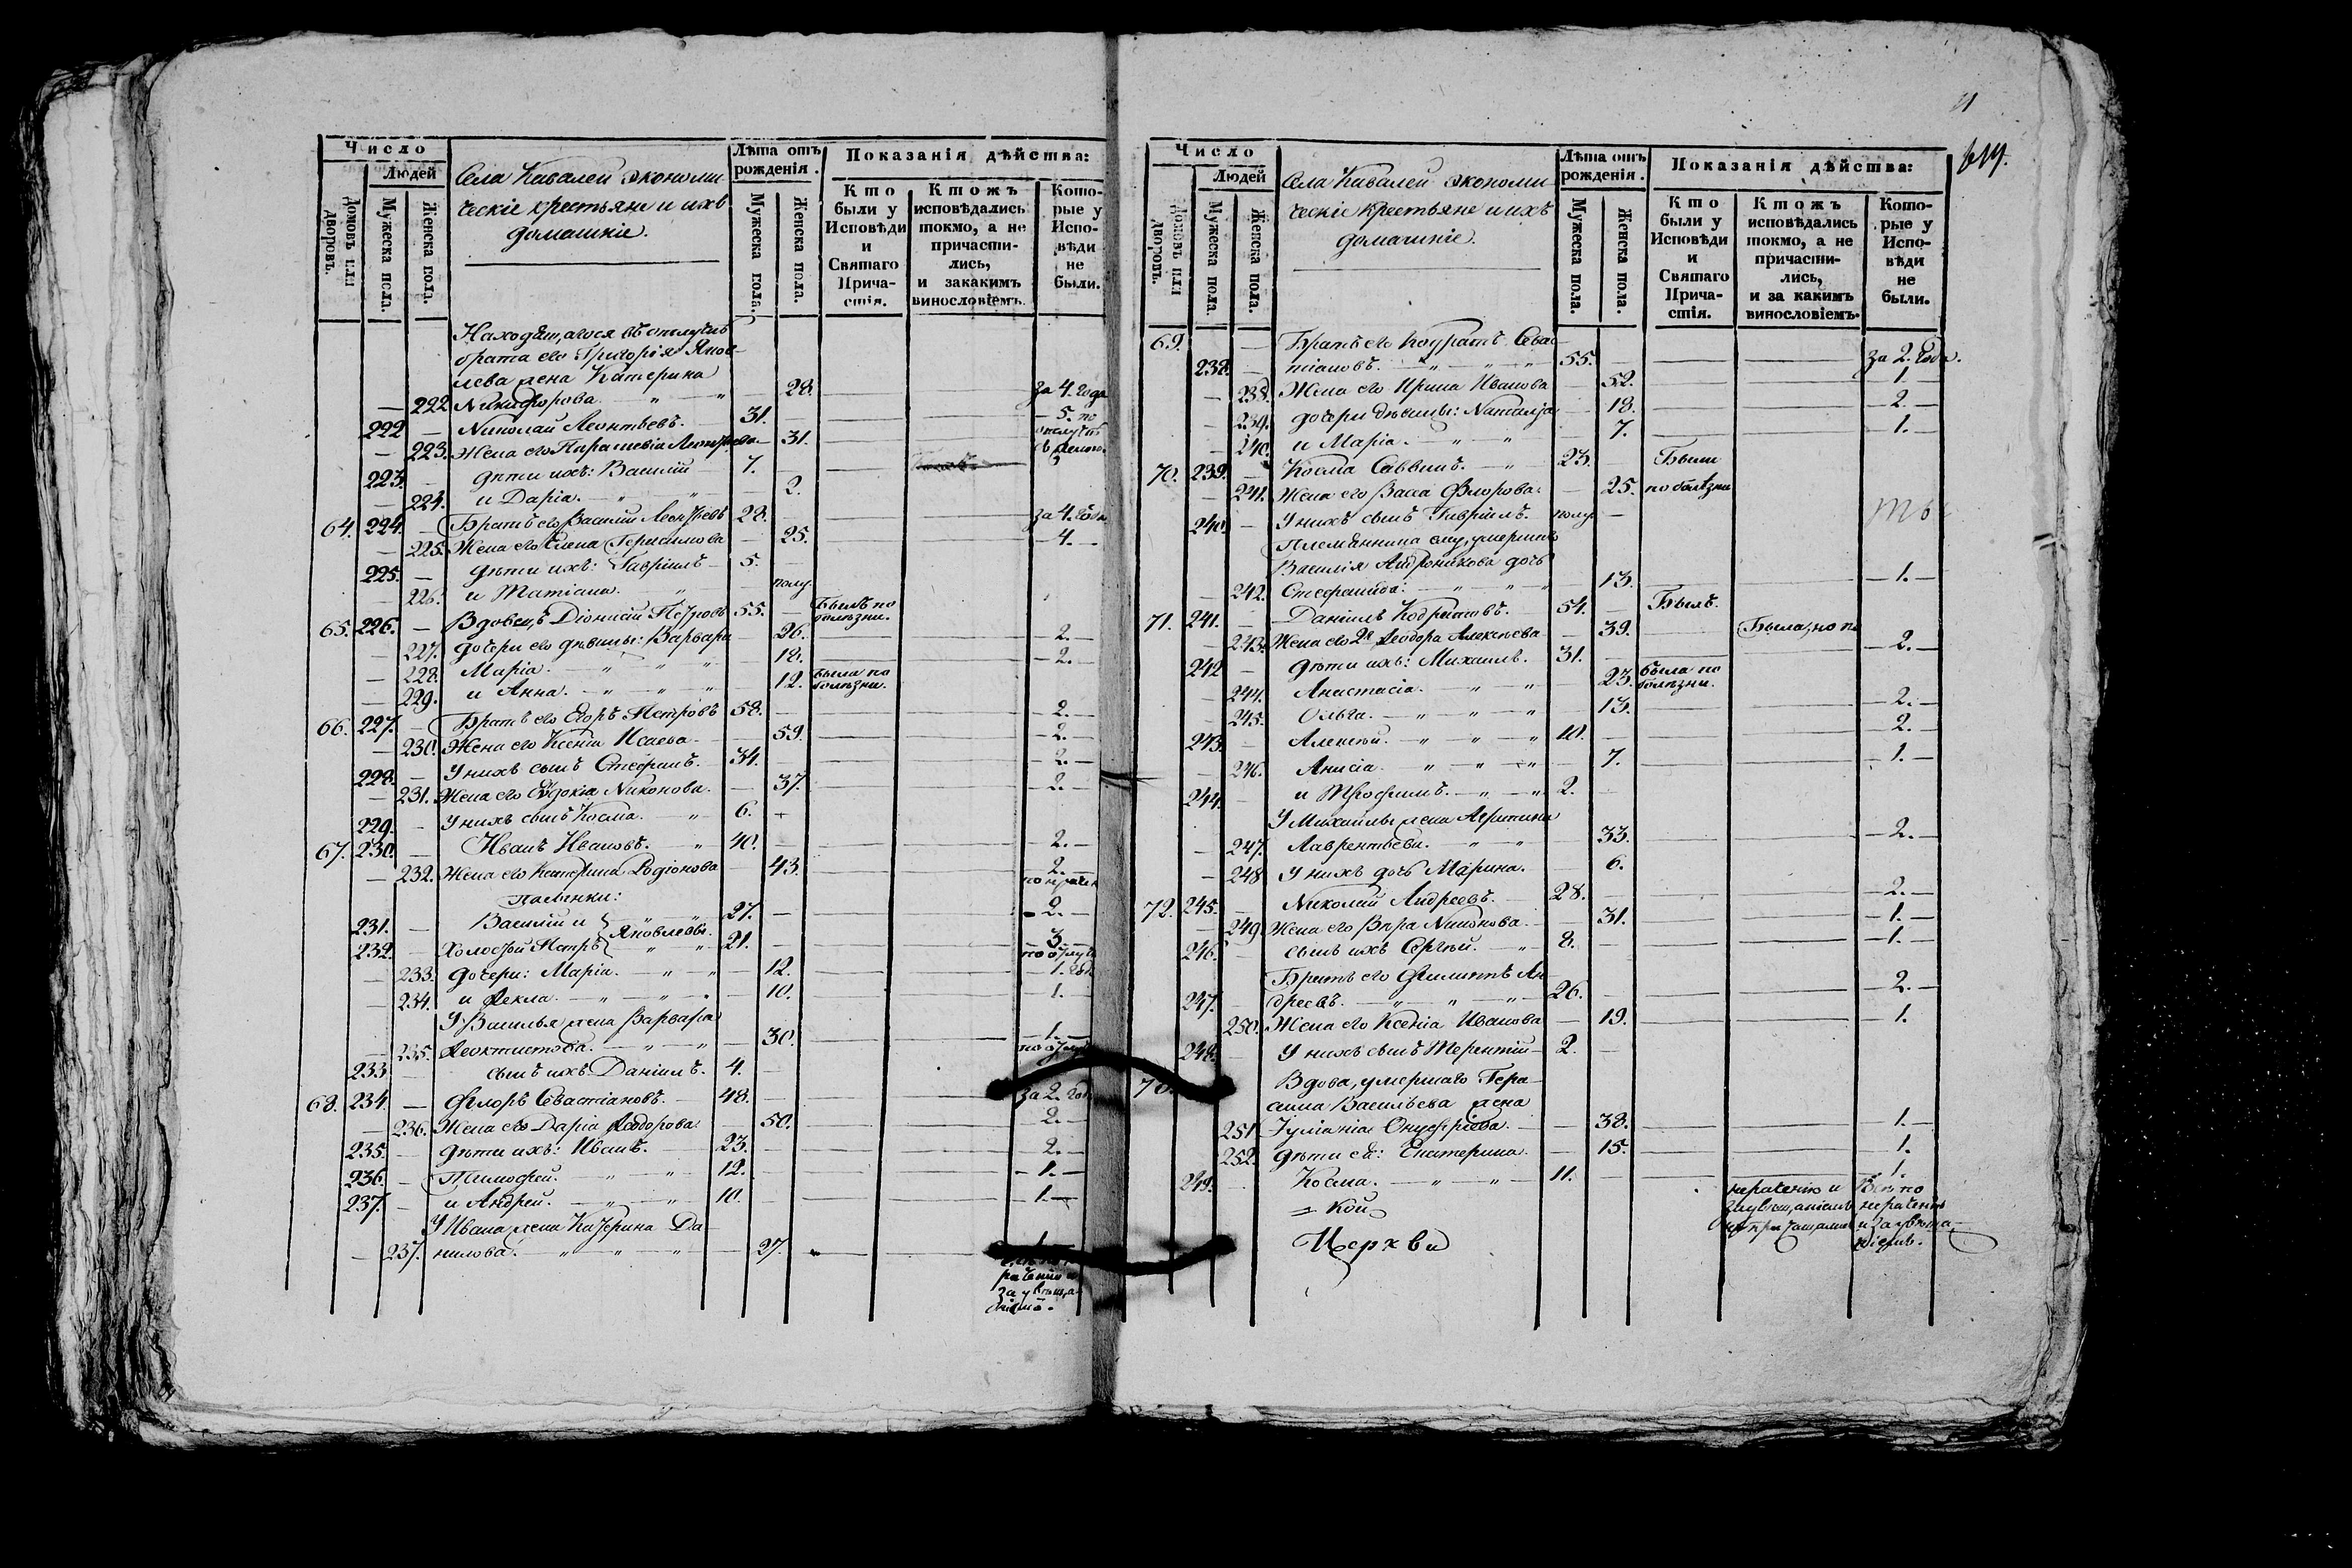 Число
Людей
домовъ или дворовъ.
Мужеска пола.
Женска пола.
Села Кавалей экономи
ческіе крестьяне и ихъ
домашніе.
Лѣта отъ рожденія.
Мужеска пола.
Женска пола.
Показанія дѣйства:
Кто были у Исповѣди и Святаго Причастія.
Ктожъ исповѣдались токмо, а не причастились, и закакимъ винословіемъ.
Которые у Исповѣди не были.
Находящагося въ отлучкѣ
брата его Григорія Яков
лева жена Катерина
— 222 Никифорова. 28. за 4. года
222 — Николай Леонтьевъ. 31. — 5. по
отлучкѣ
— 223. Жена его Параскевіа 31.
223. — дѣти ихъ: Василій 7.
— 224. и Даріа. 2.
64. 224. — Братъ его Василій Леонтьевъ 28. за 4. года
— 225. Жена его Елена Герасимова 25. — 4. —
225. — дѣти ихъ: Гавріилъ 5.
— 226. и Татіана. полу.
65. 226. — Вдовецъ Діонисій Петровъ 55. Былъ по
болѣзни.
— 227. дочери его дѣвицы: Варвара 26. 2. —
— 228. Маріа. 18. — 2. —
— 229. и Анна. 12. была по
болѣзни.
66. 227. — Братъ его Егоръ Петровъ 58. 2. —
— 230. Жена его Ксеніа Исаева 59. — 2. —
228. — У нихъ сынъ Стефанъ. 34. — 2. —
— 231. Жена его Евдокіа Никонова. 37. — 2. —
229. — У нихъ сынъ Косма. 6.
67. 230. — Иванъ Ивановъ. 40. — 2. —
— 232. Жена его Катерина Родіонова 43. 2. —
пасынки:
231. — Василій и } Яковлевы. 27. — 2. —
232. — Холостой Петръ 21. 3
— 233. дочери: Маріа. 12. — 1. год.
— 234. и Ѳекла. 10. 1. —
У Василья жена Варвара
— 235. Ѳеоктистова. 30. — 1. —
233 — сынъ ихъ Даніилъ. 4.
68. 234. — Флоръ Севастіановъ. 48. за 2. год.
— 236. Жена его Даріа Ѳеодорова. 50. 2. —
235. — дѣти ихъ: Иванъ. 23. 2. —
236. — Тимофей. 12. — 1. —
237. — и Андрей. 10. — 1. —
У Ивана жена Катерина Да
— 237. нилова. 27. 1
Число
Людей
домовъ или дворовъ.
Мужеска пола.
Женска пола.
Села Кавалей экономи
ческіе крестьяне и ихъ
домашніе.
Лѣта отъ рожденія.
Мужеска пола.
Женска пола.
Показанія дѣйства:
Кто были у Исповѣди и Святаго Причастія.
Ктожъ исповѣдались токмо, а не причастились, и за какимъ винословіемъ.
Которые у Исповѣди не были.
69. Братъ его Кодратъ Севас
238. — тіановъ. 55. за 2. года.
— 238. Жена его Ирина Иванова 52. 1. —
— 239. дочери дѣвицы: Наталіа 18. 2. —
— 240. и Маріа. 7. 1. —
70. 239. — Косма Саввинъ. 23. Были
— 241. Жена его Васса Флорова. 25. по болѣзни
240. — У нихъ сынъ Гавріилъ. полу.
Племянница ему, умершаго
Василіа Андроникова дочь
242. Стефанида. 13. — 1. —
71. 241. — Даніилъ Кодратовъ. 54. Былъ.
243. Жена его 2я Ѳеодора Алексѣева 39. Была, но п
242 — дѣти ихъ: Михаилъ. 31. — 2. —
244. Анастасіа. 23. была по
болѣзни.
245. Ольга. 13. — 2. —
243. — Алексѣй. 10. 2. —
246. Анисіа. 7. — 1. —
244. — и Трофимъ. 2.
У Михаилы жена Агрипина
— 247. Лаврентьева. 33. — 2. —
— 248 У нихъ дочь Марина. 6.
72. 245. — Николай Андреевъ. 28. — 2. —
— 249 Жена его Вѣра 31. — 1. —
246. сынъ ихъ Сергѣй. 8. — 1. —
Братъ его Филиппъ Ан
247. — дреевъ. 26. — 2. —
250. Жена его Ксеніа Иванова 19. 1.
248. — У нихъ сынъ Терентій 2.
Вдова, умершаго Гера
сима Васильева жена
251. Іуліаніа Онуфріева. 38. 1. —
252. дѣти еѣ: Екатерина. 15. 1.
249. Косма. 11. 1.
= кой
Церкви